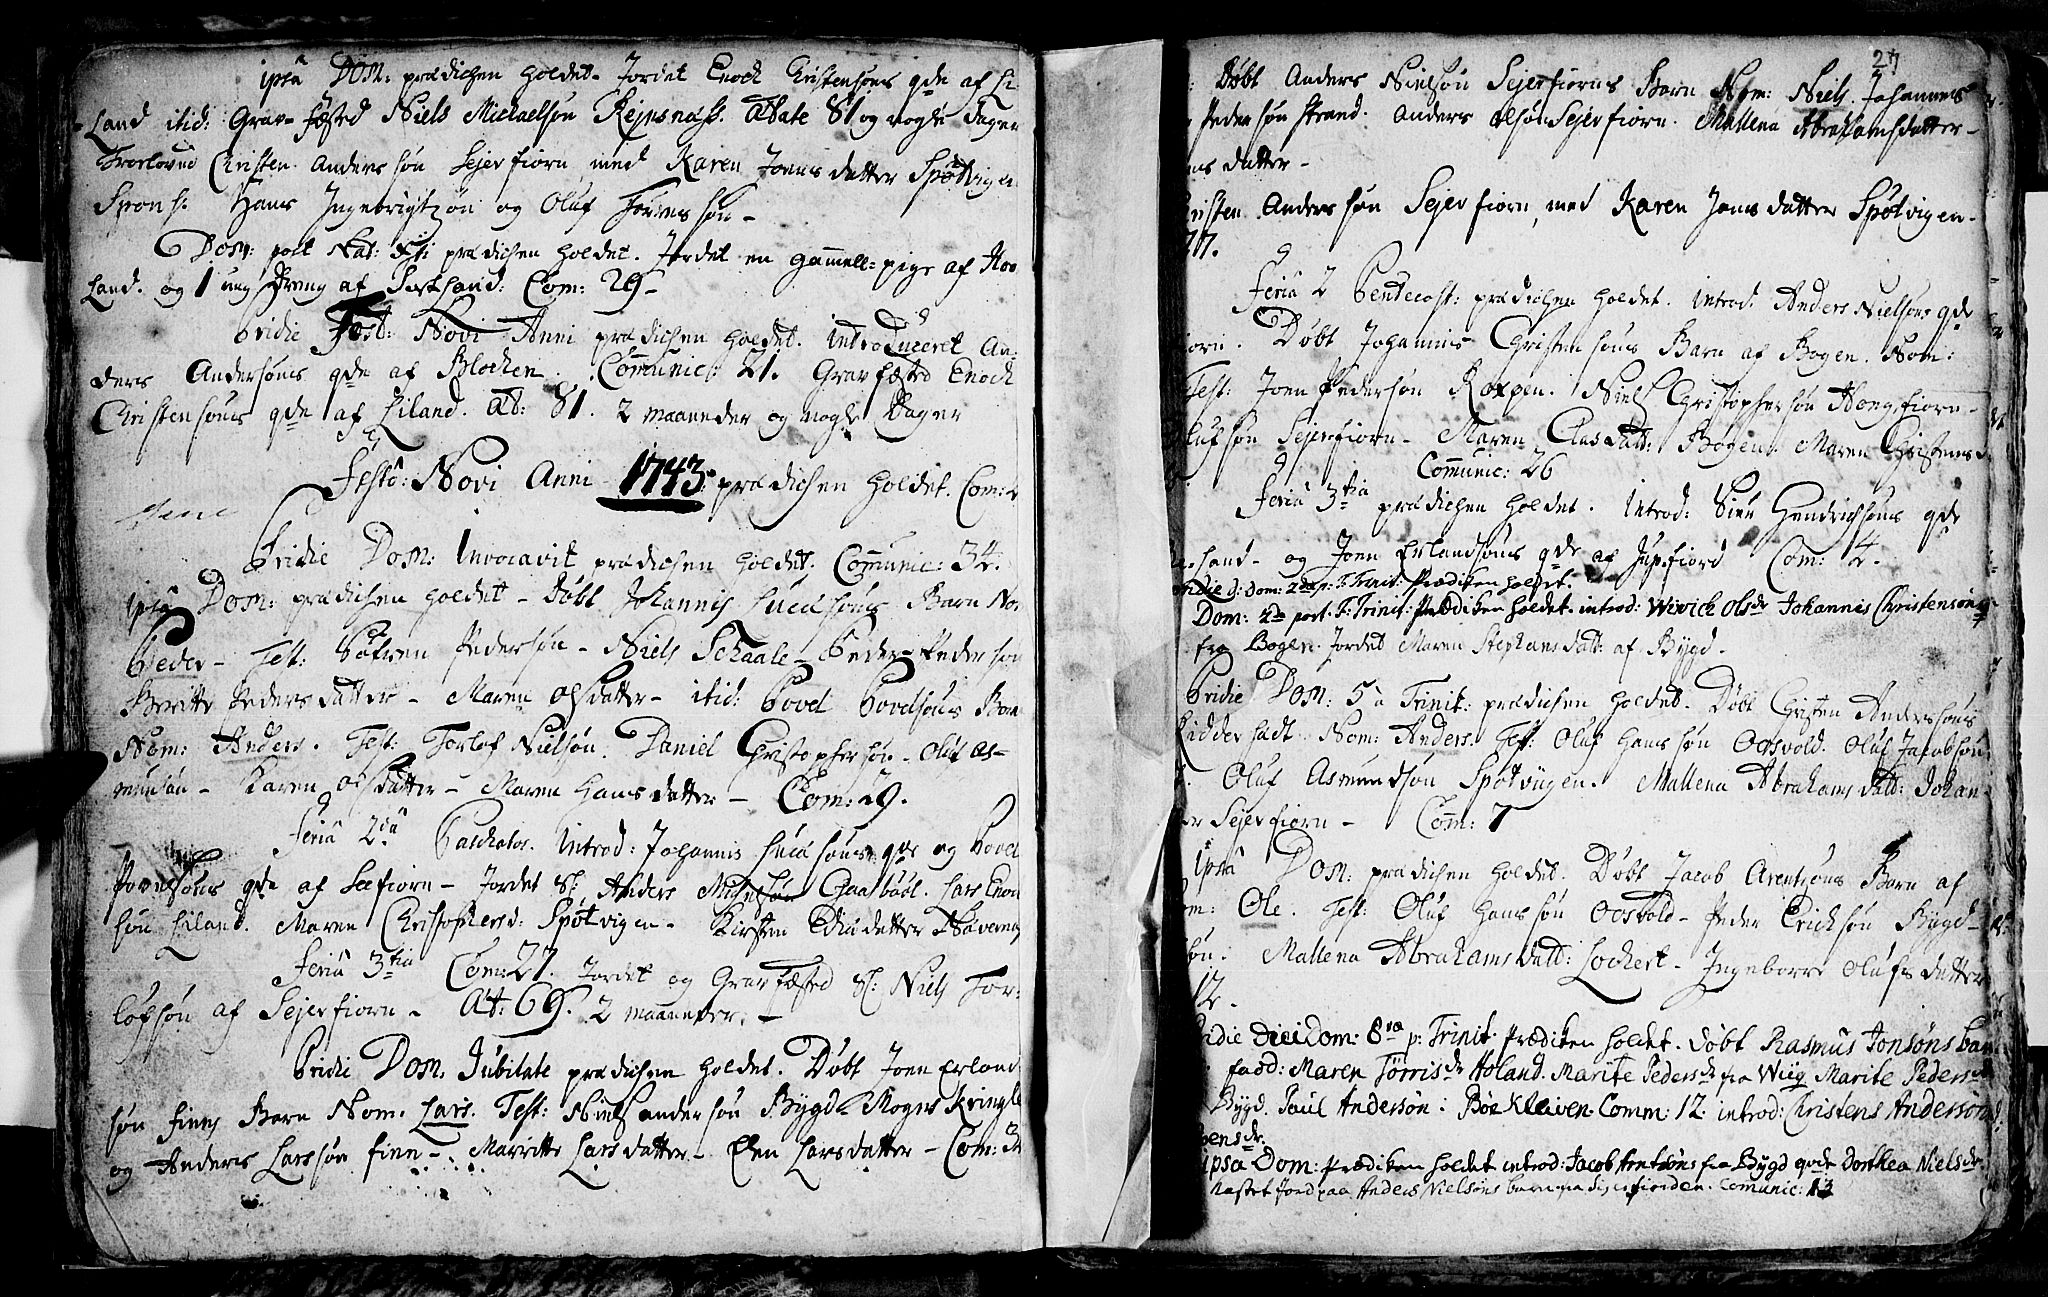 ipsâ Dom: prædichen holdet. Jordet Enoch Christensøns qde af Li
land itid: Grav-fæsted Niels Michaelsøn Rejnsnæss. ætate 81 og nogle dager
Troelovud Christen Anderssøn Sejerfiorn med Karen Joensdatter Spøtvigen
Spons: Hans Ingebrigtzøn og Oluf Torressøn-
Dom: post Nat: Xti prædichen holdet. Jordet en gammell pige af Hou
land. og 1 ung Dreng af Sortland: Com: 29-
Pridie Fest: Novi Anni prædichen holdet. Introduceret An:
ders Andersøns qde af Blochen. Communic: 21. Gravfæsted Enoch
Christensøns qde af Liland. Æt: 81. 2 maaneder og nogle Dager
Festo: Novi Anni 1743: prædichen holdet. Com: 2
Pridie Dom: Invocavit prædichen holdet. Communic: 34.
Ipsa Dom: prædichen holdet- Døbt Johannis Barn No
Peder- Test: Søfren Pedersøn- Niels Schaale- Peder Pedersøn
Beritte Pedersdatter- Maren Olsdatter- itid: Povel Povelsøns Barn
Nom: Anders. Test: Torlof Nielsøn. Daniel Christophersøn- Oluf As-
munsøn- Karen Olsdatter- Maren Hansdatter- Com: 29.
Feriâ 2da Paschatos. Introd: Johannis qde og Povel
Povelsøns qde af Seefiorn- Jordet Sl: Anders Gaasbøel. Lars Enoch
søn Liland. Maren Christophersd: Spøtvigen- Kirsten datter
Feriâ 3tia Com: 27. Jordet og Gravfæsted Sl: Niels Tor:
lofsøn af Sejerfiorn- Æt: 69. 2 maaneder.-
Pridie Dom. Jubilate prædichen holdet. Døbt Joen Erland
søn finns Barn Nom. Lars. Test: Niels andersøn Bygd- Mogens Kringle
og Anders Larssøn finn-. Marritte Larsdatter- Elen Larsdatter- Com: 3
24
Døbt Anders Nielsøn Sejerfiorns Barn Nom: Niels. Johannes
Pedersøn Strand. Anders olsøn Sejerfiorn. Mallena Abrahamsdatter-
ns datter-
risten Anderssøn Sejerfiorn, med Karen Jonsdatter Spøtvigen-
17.
Feriâ 2 Pentecost: prædichen holdet. Introd: Anders Nielsøns qde
iorn. Døbt Johannis Christensøns Barn af Bogen. Nom:
Test: Joen Pedersøn Roxpen. Niels Christophersøn Hongsfiorn-
lufsøn Sejerfiorn- Maren Clasdatt: Bogen. Maren Christens
Communic: 26
Feriâ 3tia prædichen holdet. Introd: Siur Hendrichsøns qde
sand- og Joen Erlandsøns qde af Jupfiord Com: 4.
Pridie d: Dom: 2da p: F: Trinit: Prædiken holdet.
Dom: 2da post. F: Trinit: Prædiken holdet. introd: Wivich Olsdr Johannis Christensøns
fra Bogen. Jordet Maren Stephansdatt: af Bygd-
Pridie Dom: 5 à Trinit: prædichen holdet. Døbt Christen Anderssøns
Nom: Anders. Test: Oluf Hanssøn Oosvold. Oluf Jacobsøn
Oluf Asmundsøn Spøtvigen. Mallena Abrahamsdatt: Johan
er Sejerfiorn- Com: 7
Ipsâ Dom: prædichen holdet. Døbt Jacob Arentzøns Barn af
om: Ole. Test: Oluf Hanssøn Oosvold- Peder Ericksøn Bygd-
søn: Mallena Abrahamsdatt: Lochert- Ingeborre Olufsdatter
12.
Pridie Dom: 8va p: Trinit: Prædiken holdet. Døbt Rasmus Jonsøns barn
fadd: Maren Tørrisdr Holand. Marite Pedersdr fra Wiig Marite Pedersdr
Bygd. Paul Andersøn i Bøe Kleiven. Comm: 12 introd: Christens Andersøns
ensdr.
ipsa Dom: Prædiken holdet introd: Jacob Arntsøns fra Bygd qvde Dorthea Nielsdr
kastet Jord paa Anders Nielsøns barn fra fiorden. Comunic: 13